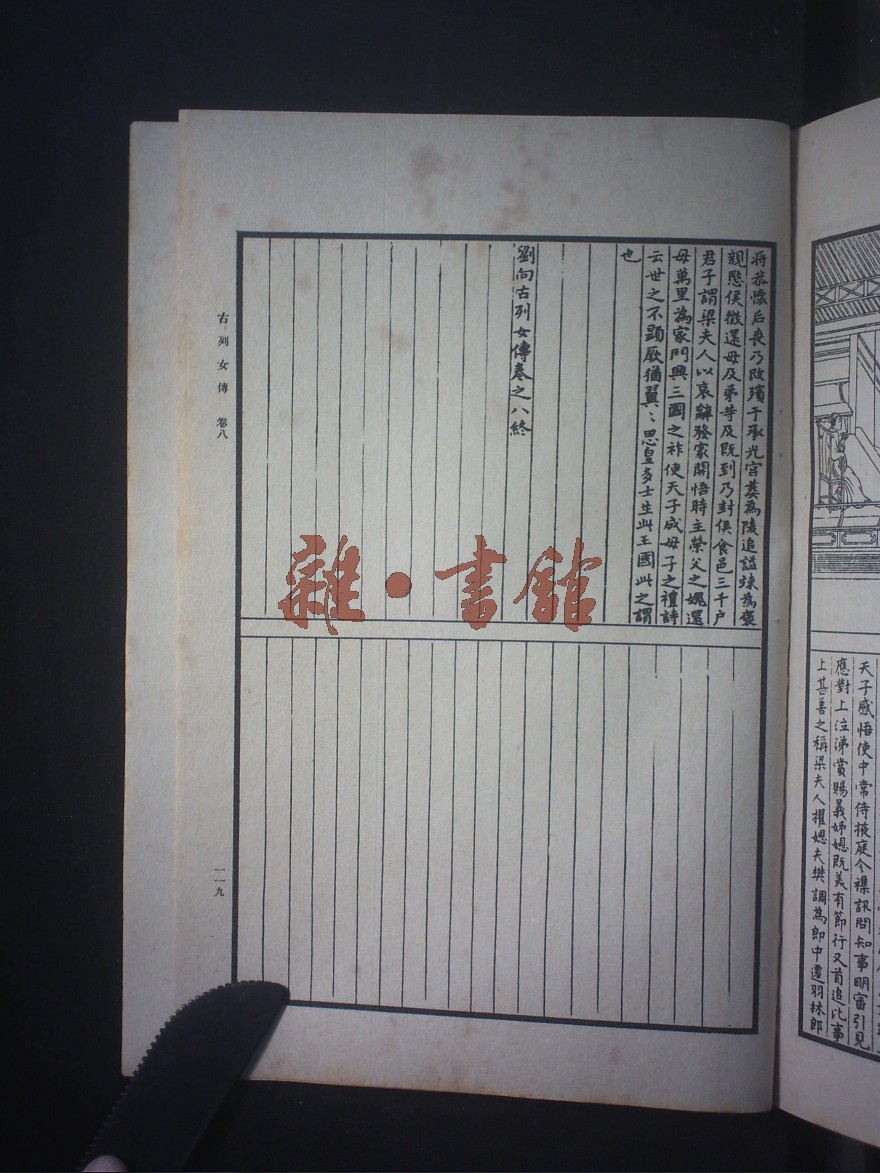 天子感悟使中常侍掖庭令襍訊問知事明審引見
應對上泣涕賞賜義姊嫕既美有節行又首追此事
上甚善之稱梁夫人擢嫕夫樊調為郎中遷羽林郎
將恭懷后喪乃改殯于承光宮葬為陵追謚竦為襃
親愍侯徵還母及弟等及既到乃封侯食邑三千户
君子謂梁夫人以哀辭發家開悟時主榮父之魂還
母萬里為家門興三國之祚使天子成母子之禮詩
云世之不顯厥猶翼〻思皇多士生此王國此之謂
也
劉向古列女傳卷之八終
古列女傳 卷八
一一九
雜·書館